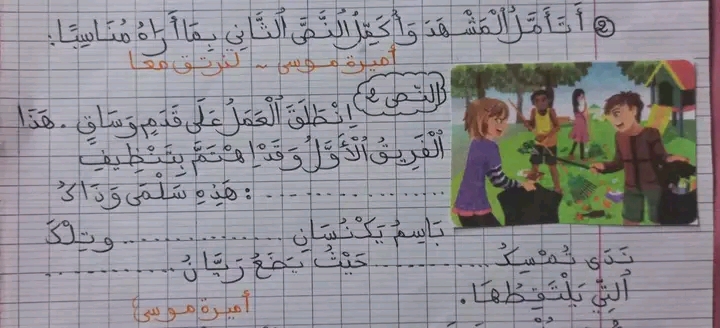 ② أَتَأَمَّلُ الْمَشْهَدَ وَأُكَمِّلُ النَّصَّ الثَّانِي بِمَا أَرَاهُ مُنَاسِبًا:
أميرة موسى ~ لنرتق معا
النّص 2
اِنْطَلَقَ الْعَمَلُ عَلَى قَدَمٍ وَسَاقٍ. هَذَا
الْفَرِيقُ الْأَوَّلُ وَقَدْ اِهْتَمَّ بِتَنْظِيفِ
.................. : هَذِهِ سَلْمَى وَذَاكَ
بَاسِمُ يَكْنُسَانِ .............. وَتِلْكَ
نَدَى تُمْسِكُ .............. حَيْثُ يَضَعُ رَيَّانُ ..............
الَّتِي يَلْتَقِطُهَا.
أميرة موسى